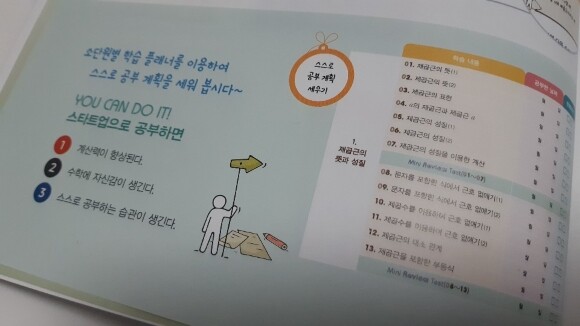 소단원별 학습 플래너를 이용하여
스스로 공부 계획을 세워 봅시다~
YOU CAN DO IT!
스타트업으로 공부하면
1 계산력이 향상된다.
2 수학에 자신감이 생긴다.
3 스스로 공부하는 습관이 생긴다.
스스로
공부 계획
세우기
학습 내용
공부한 날짜
1.
제곱근의
뜻과 성질
01. 제곱근의 뜻(1)
02. 제곱근의 뜻(2)
03. 제곱근의 표현
04. a의 제곱근과 제곱근 a
05. 제곱근의 성질(1)
06. 제곱근의 성질(2)
07. 제곱근의 성질을 이용한 계산
Mini Review Test(01~07)
08. 문자를 포함한 식에서 근호 없애기(1)
09. 문자를 포함한 식에서 근호 없애기(2)
10. 제곱수를 이용하여 근호 없애기(1)
11. 제곱수를 이용하여 근호 없애기(2)
12. 제곱근의 대소 관계
13. 제곱근을 포함한 부등식
Mini Review Test(08~13)